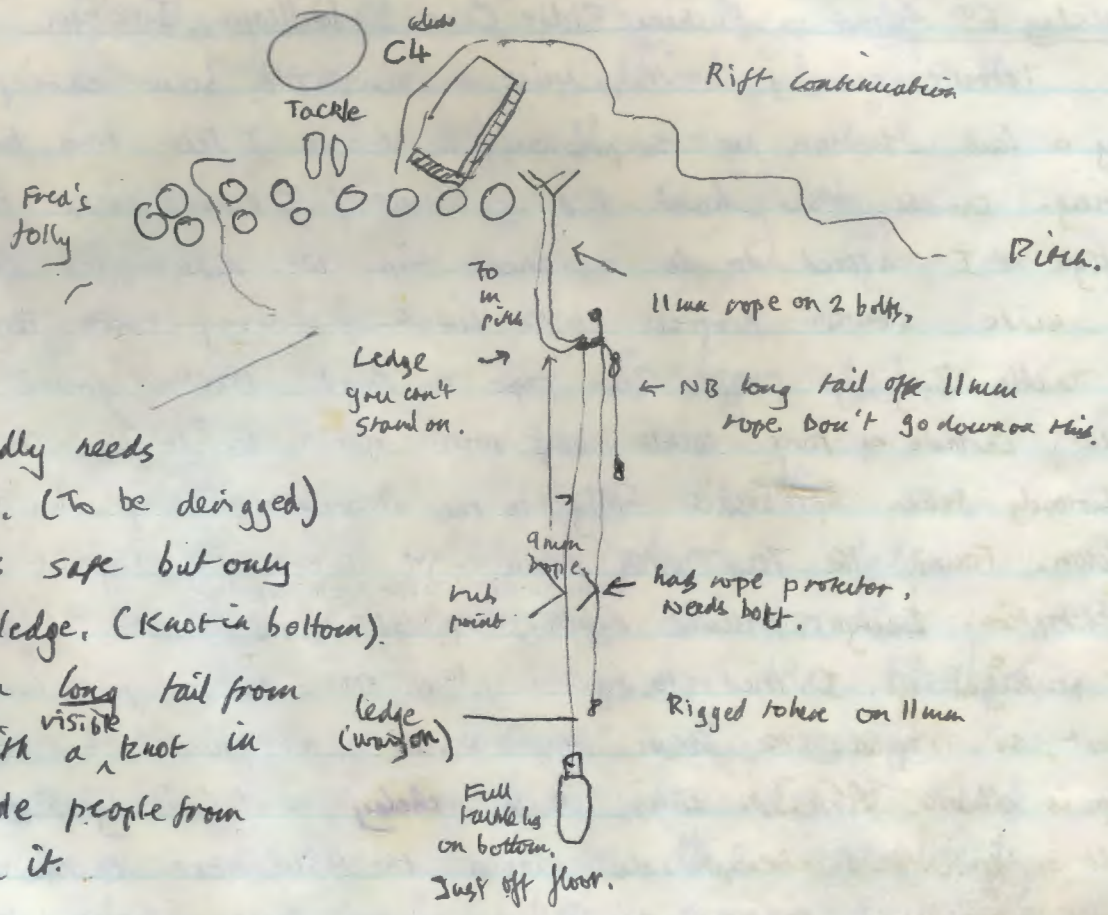 C4
Tackle
Rift Continuation
Fred's
folly
Pitch.
To
in
11mm rope on 2 bolts,
Ledge
you can't
stand on.
← NB long tail off 11mm
rope. Don't go down on this.
dly needs
. (To be derigged)
safe but only
ledge. (Knot in bottom).
long tail from
visible
th a knot in
de people from
it.
9mm
rope
rub
point
← has rope protector.
Needs bolt.
ledge
Rigged to here on 11mm
Full
on bottom.
Just off floor.